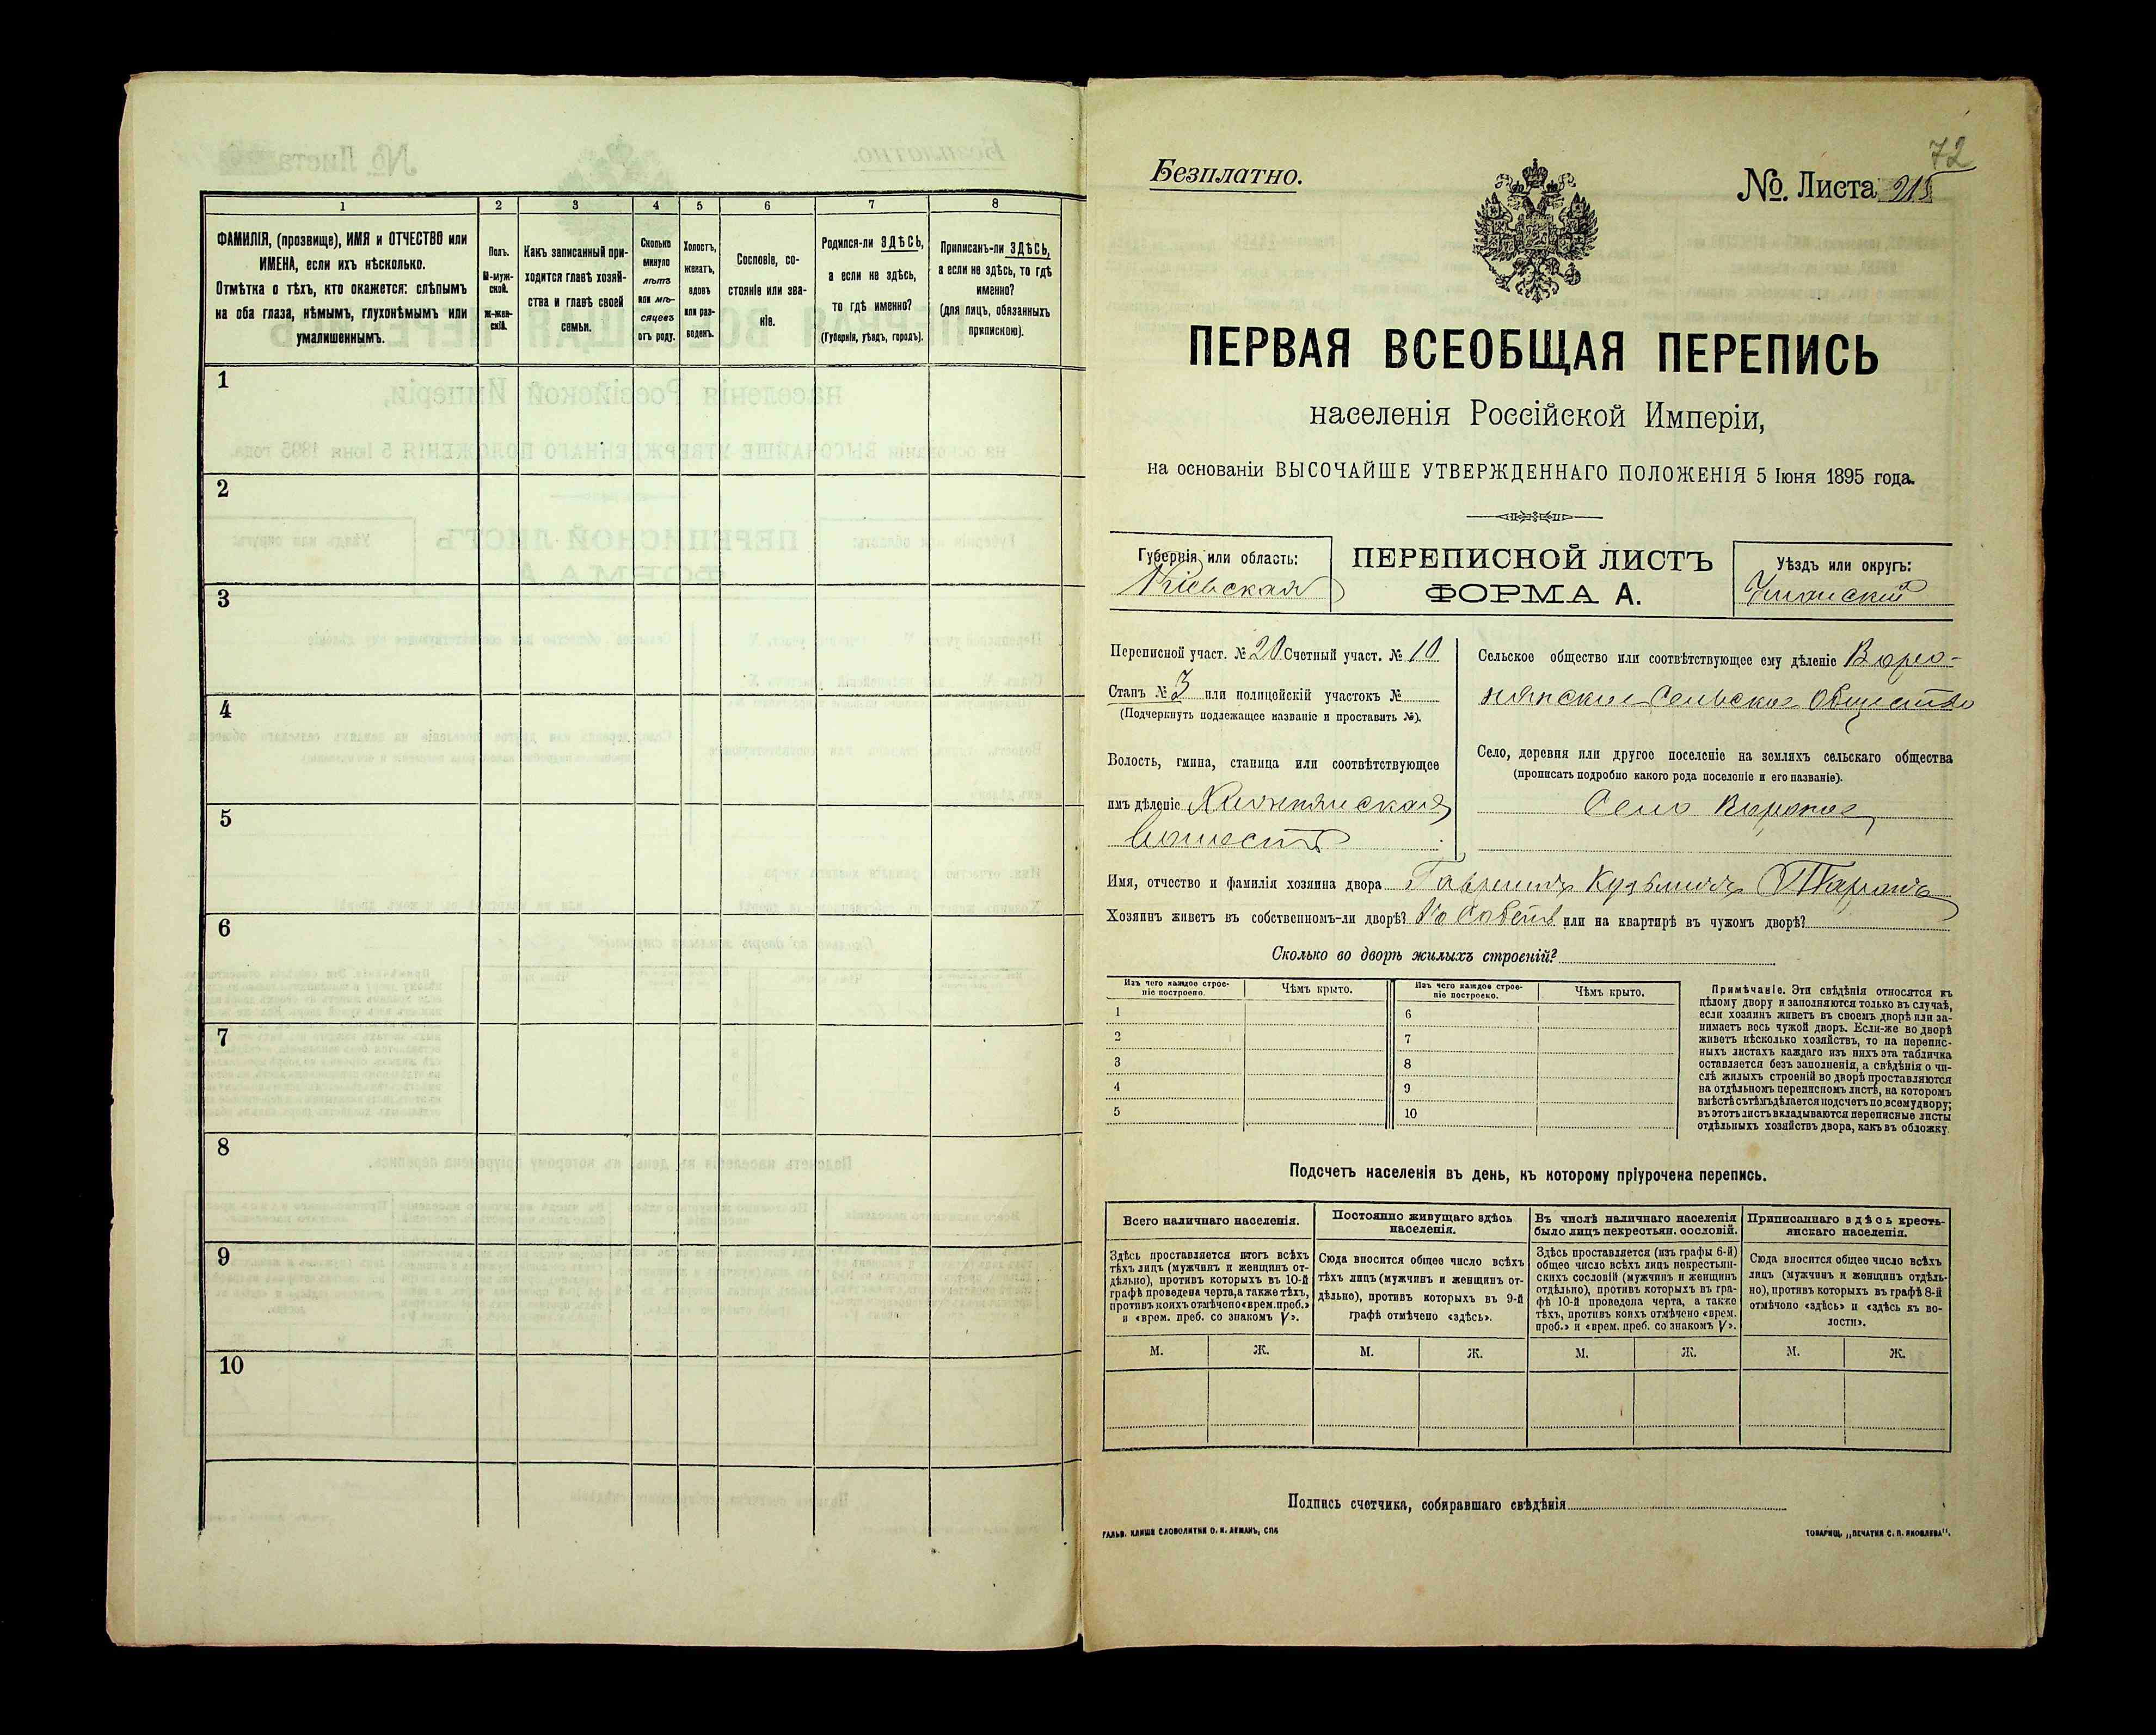 1
2
3
4
5
6
7
8
ФАМИЛІЯ, (прозвище), ИМЯ и ОТЧЕСТВО или
ИМЕНА, если ихъ нѣсколько.
Отмѣтка о тѣхъ, кто окажется: слѣпымъ
на оба глаза, нѣмымъ, глухонѣмымъ или
умалишеннымъ.
Полъ.
М-муж-
ской.
Ж-жен-
скій.
Какъ записанный при-
ходится главѣ хозяй-
ства и главѣ своей
семьи.
Сколько
минуло
лѣтъ
или мѣ-
сяцевъ
отъ роду.
Холостъ,
женатъ,
вдовъ
или раз-
веденъ.
Сословіе, со-
стояніе или зва-
ніе.
Родился-ли ЗДѢСЬ,
а если не здѣсь,
то гдѣ именно?
(Губернія, уѣздъ, городъ).
Приписанъ-ли ЗДѢСЬ,
а если не здѣсь, то гдѣ
именно?
(для лицъ, обязанныхъ
припискою).
1
2
3
4
5
6
7
8
9
10
72
Безплатно.
№. Листа 215
ПЕРВАЯ ВСЕОБЩАЯ ПЕРЕПИСЬ
населенія Россійской Имперіи,
на основаніи ВЫСОЧАЙШЕ УТВЕРЖДЕННАГО ПОЛОЖЕНІЯ 5 Іюня 1895 года.
Губернія или область:
Кіевская
ПЕРЕПИСНОЙ ЛИСТЪ
ФОРМА А.
Уѣздъ или округъ:
Уманскій
Переписной участ. № 20 Счетный участ. № 10
Станъ № 3 или полицейскій участокъ №
(Подчеркнуть подлежащее названіе и проставить №).
Волость, гмина, станица или соотвѣтствующее
имъ дѣленіе
Сельское общество или соотвѣтствующее ему дѣленіе
Сельское Общество
Село, деревня или другое поселеніе на земляхъ сельскаго общества
(прописать подробно какого рода поселеніе и его названіе).
Село Вороное
Имя, отчество и фамилія хозяина двора Гавріилъ Кузьмичъ
Хозяинъ живетъ въ собственномъ-ли дворѣ? или на квартирѣ въ чужомъ дворѣ?
Сколько во дворѣ жилыхъ строеній?
Изъ чего каждое строе-
ніе построено.
Чѣмъ крыто.
Изъ чего каждое строе-
ніе построено.
Чѣмъ крыто.
1
2
3
4
5
6
7
8
9
10
Примѣчаніе. Эти свѣдѣнія относятся къ
цѣлому двору и заполняются только въ случаѣ,
если хозяинъ живетъ въ своемъ дворѣ или за-
нимаетъ весь чужой дворъ. Если-же во дворѣ
живетъ нѣсколько хозяйствъ, то на перепис-
ныхъ листахъ каждаго изъ нихъ эта табличка
оставляется безъ заполненія, а свѣдѣнія о чи-
слѣ жилыхъ строеній во дворѣ проставляются
на отдѣльномъ переписномъ листѣ, на которомъ
вмѣстѣ съ тѣмъ дѣлается подсчетъ по всему двору;
въ этотъ листъ вкладываются переписные листы
отдѣльныхъ хозяйствъ двора, какъ въ обложку.
Подсчетъ населенія въ день, къ которому пріурочена перепись.
Всего наличнаго населенія.
Здѣсь проставляется итогъ всѣхъ
тѣхъ лицъ (мужчинъ и женщинъ от-
дѣльно), противъ которыхъ въ 10-й
графѣ проведена черта, а также тѣхъ,
противъ коихъ отмѣчено «врем. преб.»
и «врем. преб. со знакомъ V».
Постоянно живущаго здѣсь
населенія.
Сюда вносится общее число всѣхъ
тѣхъ лицъ (мужчинъ и женщинъ от-
дѣльно), противъ которыхъ въ 9-й
графѣ отмѣчено «здѣсь».
Въ числѣ наличнаго населенія
было лицъ некрестьян. сословій.
Здѣсь проставляется (изъ графы 6-й)
общее число всѣхъ лицъ некрестьян-
скихъ сословій (мужчинъ и женщинъ
отдѣльно), противъ которыхъ въ гра-
фѣ 10-й проведена черта, а также
тѣхъ, противъ коихъ отмѣчено «врем.
преб.» и «врем. преб. со знакомъ V».
Приписаннаго здѣсь кресть-
янскаго населенія.
Сюда вносится общее число всѣхъ
лицъ (мужчинъ и женщинъ отдѣль-
но), противъ которыхъ въ графѣ 8-й
отмѣчено «здѣсь» и «здѣсь къ во-
лости».
М. Ж. М. Ж. М. Ж. М. Ж.
Подпись счетчика, собиравшаго свѣдѣнія
ГАЛЬВ. КЛИШЕ СЛОВОЛИТНИ О. И. ЛЕМАНЪ, СПБ
ТОВАРИЩ. „ПЕЧАТНЯ С. П. ЯКОВЛЕВА".